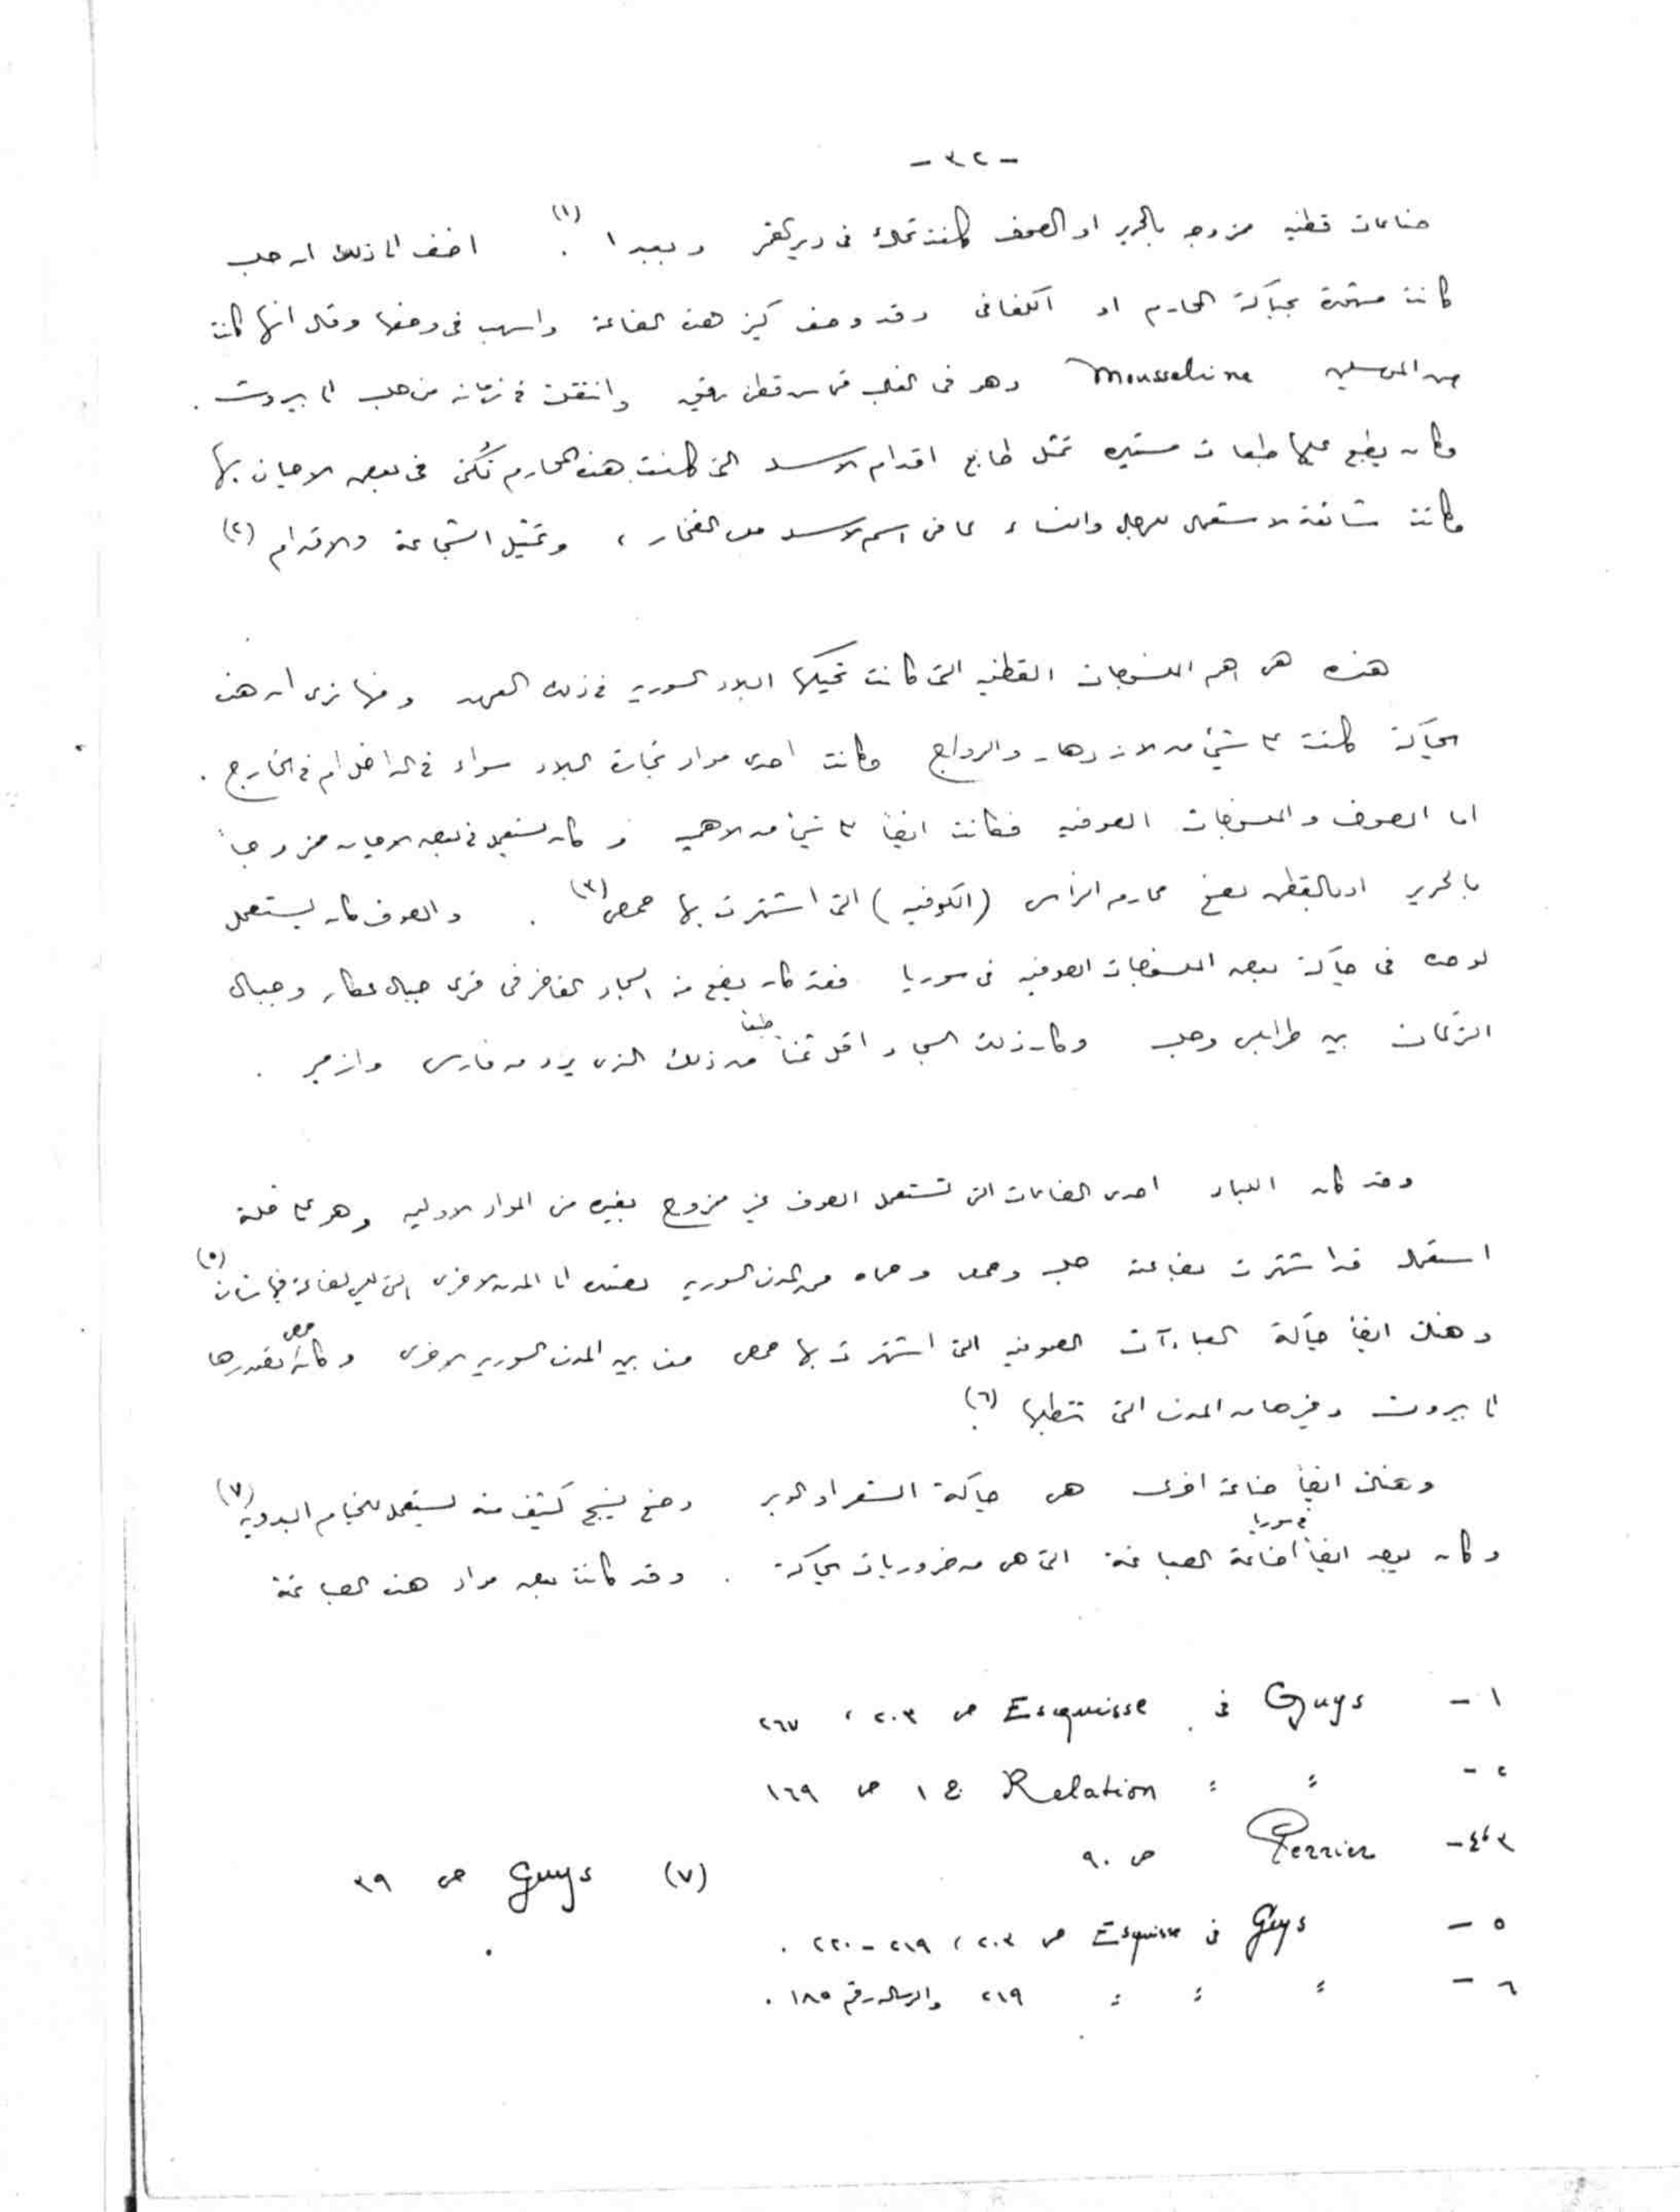 -٣٢-
صناعات قطنيه مزوجه بالحرير او الصوف كانت تحاك في دير القمر و بعبدا (١). اضف الى ذلك ان حلب
كانت مشتهرة بحياكة المحارم او الكفافي وقد وصف كيز هذه الصناعة واسهب في وصفها وقال انها كانت
من الموسلين Mousseline وهو في الغالب قماش قطن رقيق وانتقلت في زمانه من حلب الى بيروت .
وكان يطبع عليها طبعات مستديره تمثل طابع اقدام الاسد التي كانت هذه المحارم تُكنى في بعض الاحيان بها
وكانت شائعة الاستعمال للرجال والنساء لما في اسم الاسد من الفخار ، وتمثيل الشجاعة والاقدام (٢)
هذه هي اهم المنسوجات القطنيه التي كانت تحيكها البلاد السوريه في ذلك العهد ومنها نرى ان هذه
الحياكة كانت على شيء من الازدهار والرواج وكانت احدى مواد تجارة البلاد سواء في الداخل ام في الخارج .
اما الصوف والمنسوجات الصوفيه فكانت ايضاً على شيء من الاهميه و كان يستعمل في بعض الاحيان ممزوجاً
بالحرير او بالقطن لصنع محارم الراس (الكوفيه) التي اشتهرت بها حمص (٣) . والصوف كان يستعمل
لوحده في حياكة بعض المنسوجات الصوفيه في سوريا فقد كان يصنع منه السجاد الفاخر في قرى جبال عكار وجبال
التركمان بين طرابلس وحلب وكان ذلك السجاد اقل ثمناً طبعاً من ذلك الذي يرد من فارس وازمير .
وقد كان اللباد احدى الصناعات التي تستعمل الصوف غير ممزوج بغيره من المواد الاوليه وهو على قلة
استعماله قد اشتهرت بصناعته حلب وحمص وحماه من المدن السوريه الى المدن الاخرى التي ليس لصناعة فيها شان (٥)
وهناك ايضاً حياكة العباءآت الصوفيه التي اشتهرت بها حمص من بين المدن السوريه الاخرى وكانت حمص تصدرها
الى بيروت وغيرها من المدن التي تتطلبها (٦).
وهناك ايضاً صناعة اخرى هي حياكة الشعر او الوبر وصنع نسيج كثيف منه يستعمل للخيام البدويه (٧)
وكان يوجد ايضاً في سوريا صناعة الصباغة التي هي من ضروريات الحياكة . وقد كانت بعض مواد هذه الصباغة
١ - Guys في Esquisse ص ٢٠٣ ، ٢٦٧
٢ - " " Relation ج ١ ص ١٦٩
٣،٤ - Perrier ص ٩٠
(٧) Guys ص ٣٩
٥ - Guys في Esquisse ص ٢٠٣ ، ٢١٩ - ٢٢٠ .
٦ - " " " ٢١٩ والرساله رقم ١٨٥ .